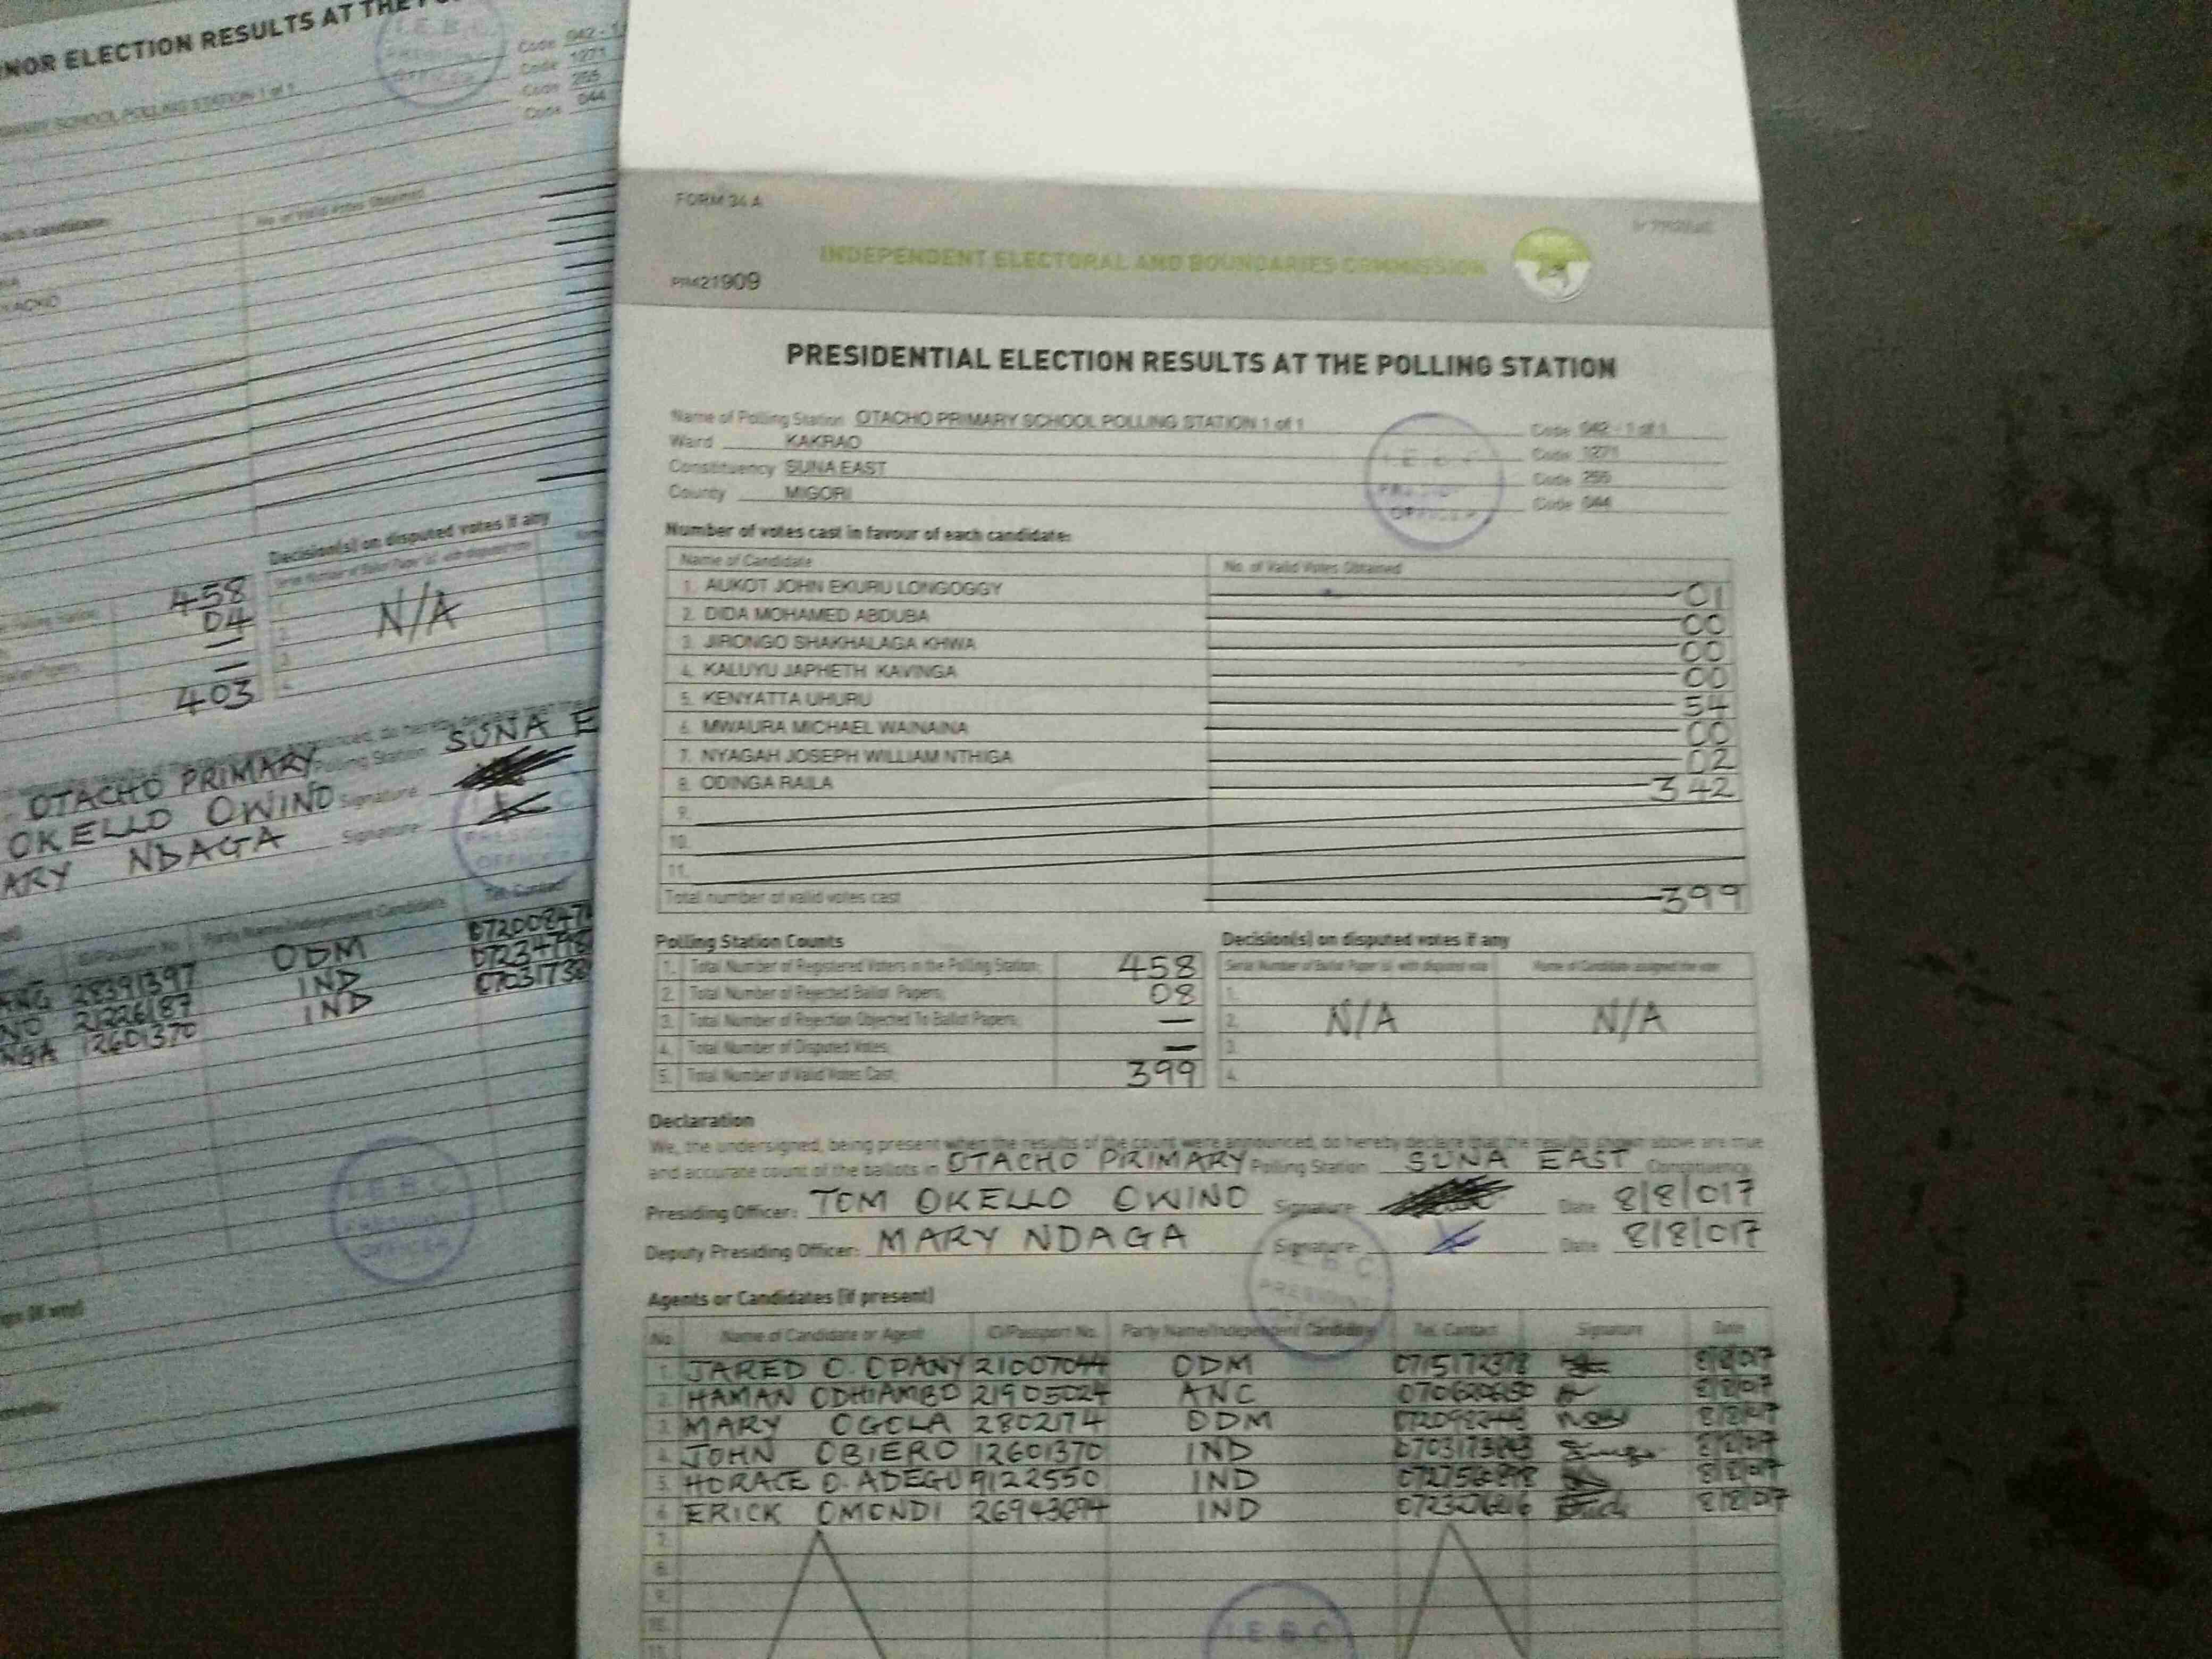 NOR ELECTION RESULTS AT THE PO
I.E.B.C.
PRESIDING
OFFICER
Code 042 - 1
Code 1271
Code 255
Code 044
PRIMARY SCHOOL POLLING STATION 1 of 1
each candidate:
No. of Valid Votes Obtained
Decision(s) on disputed votes if any
Polling Station
458
04
—
—
403
1.
2.
3.
4.
N/A
OTACHO PRIMARY Polling Station SUNA E
OKELLO OWINO Signature
ARY NDAGA Signature
PRESIDING
OFFICER
ID/Passport No. Party Name/Independent Candidate Tel. Contact
ANG 28391397 ODM
NO 21226187 IND
NGA 12601370 IND
I.E.B.C.
PRESIDING
OFFICER
FORM 34 A
INDEPENDENT ELECTORAL AND BOUNDARIES COMMISSION
PRM21909
PRESIDENTIAL ELECTION RESULTS AT THE POLLING STATION
Name of Polling Station OTACHO PRIMARY SCHOOL POLLING STATION 1 of 1 Code 042 - 1 of 1
Ward KAKRAO Code 1271
Constituency SUNA EAST Code 255
County MIGORI Code 044
I.E.B.C.
OFFICER
Number of votes cast in favour of each candidate:
Name of Candidate No. of Valid Votes Obtained
1. AUKOT JOHN EKURU LONGOGGY 01
2. DIDA MOHAMED ABDUBA 00
3. JIRONGO SHAKHALAGA KHWA 00
4. KALUYU JAPHETH KAVINGA 00
5. KENYATTA UHURU 54
6. MWAURA MICHAEL WAINAINA 00
7. NYAGAH JOSEPH WILLIAM NTHIGA 02
8. ODINGA RAILA 342
9.
10.
11.
Total number of valid votes cast 399
Polling Station Counts
1. Total Number of Registered Voters in the Polling Station; 458
2. Total Number of Rejected Ballot Papers; 08
3. Total Number of Rejection Objected To Ballot Papers; —
4. Total Number of Disputed Votes; —
5. Total Number of Valid Votes Cast; 399
Decision(s) on disputed votes if any
Serial Number of Ballot Paper (s) with disputed vote Name of Candidate assigned the vote
1.
2. N/A N/A
3.
4.
Declaration
We, the undersigned, being present when the results of the count were announced, do hereby declare that the results shown above are true
and accurate count of the ballots in OTACHO PRIMARY Polling Station SUNA EAST Constituency
Presiding Officer: TOM OKELLO OWINO Signature Date 8/8/017
Deputy Presiding Officer: MARY NDAGA Signature: Date 8/8/017
I.E.B.C.
PRESIDING
OFFICER
Agents or Candidates (if present)
No. Name of Candidate or Agent ID/Passport No. Party Name/Independent Candidate Tel. Contact Signature Date
1. JARED O. OPANY 21007044 ODM 8/8/017
2. HAMAN ODHIAMBO 21905024 ANC 8/8/017
3. MARY OGOLA 2802174 ODM 8/8/017
4. JOHN OBIERO 12601370 IND 8/8/017
5. HORACE O. ADEGU 9122550 IND 8/8/017
6. ERICK OMONDI IND 8/8/017
7.
8.
9.
10.
11.
I.E.B.C.